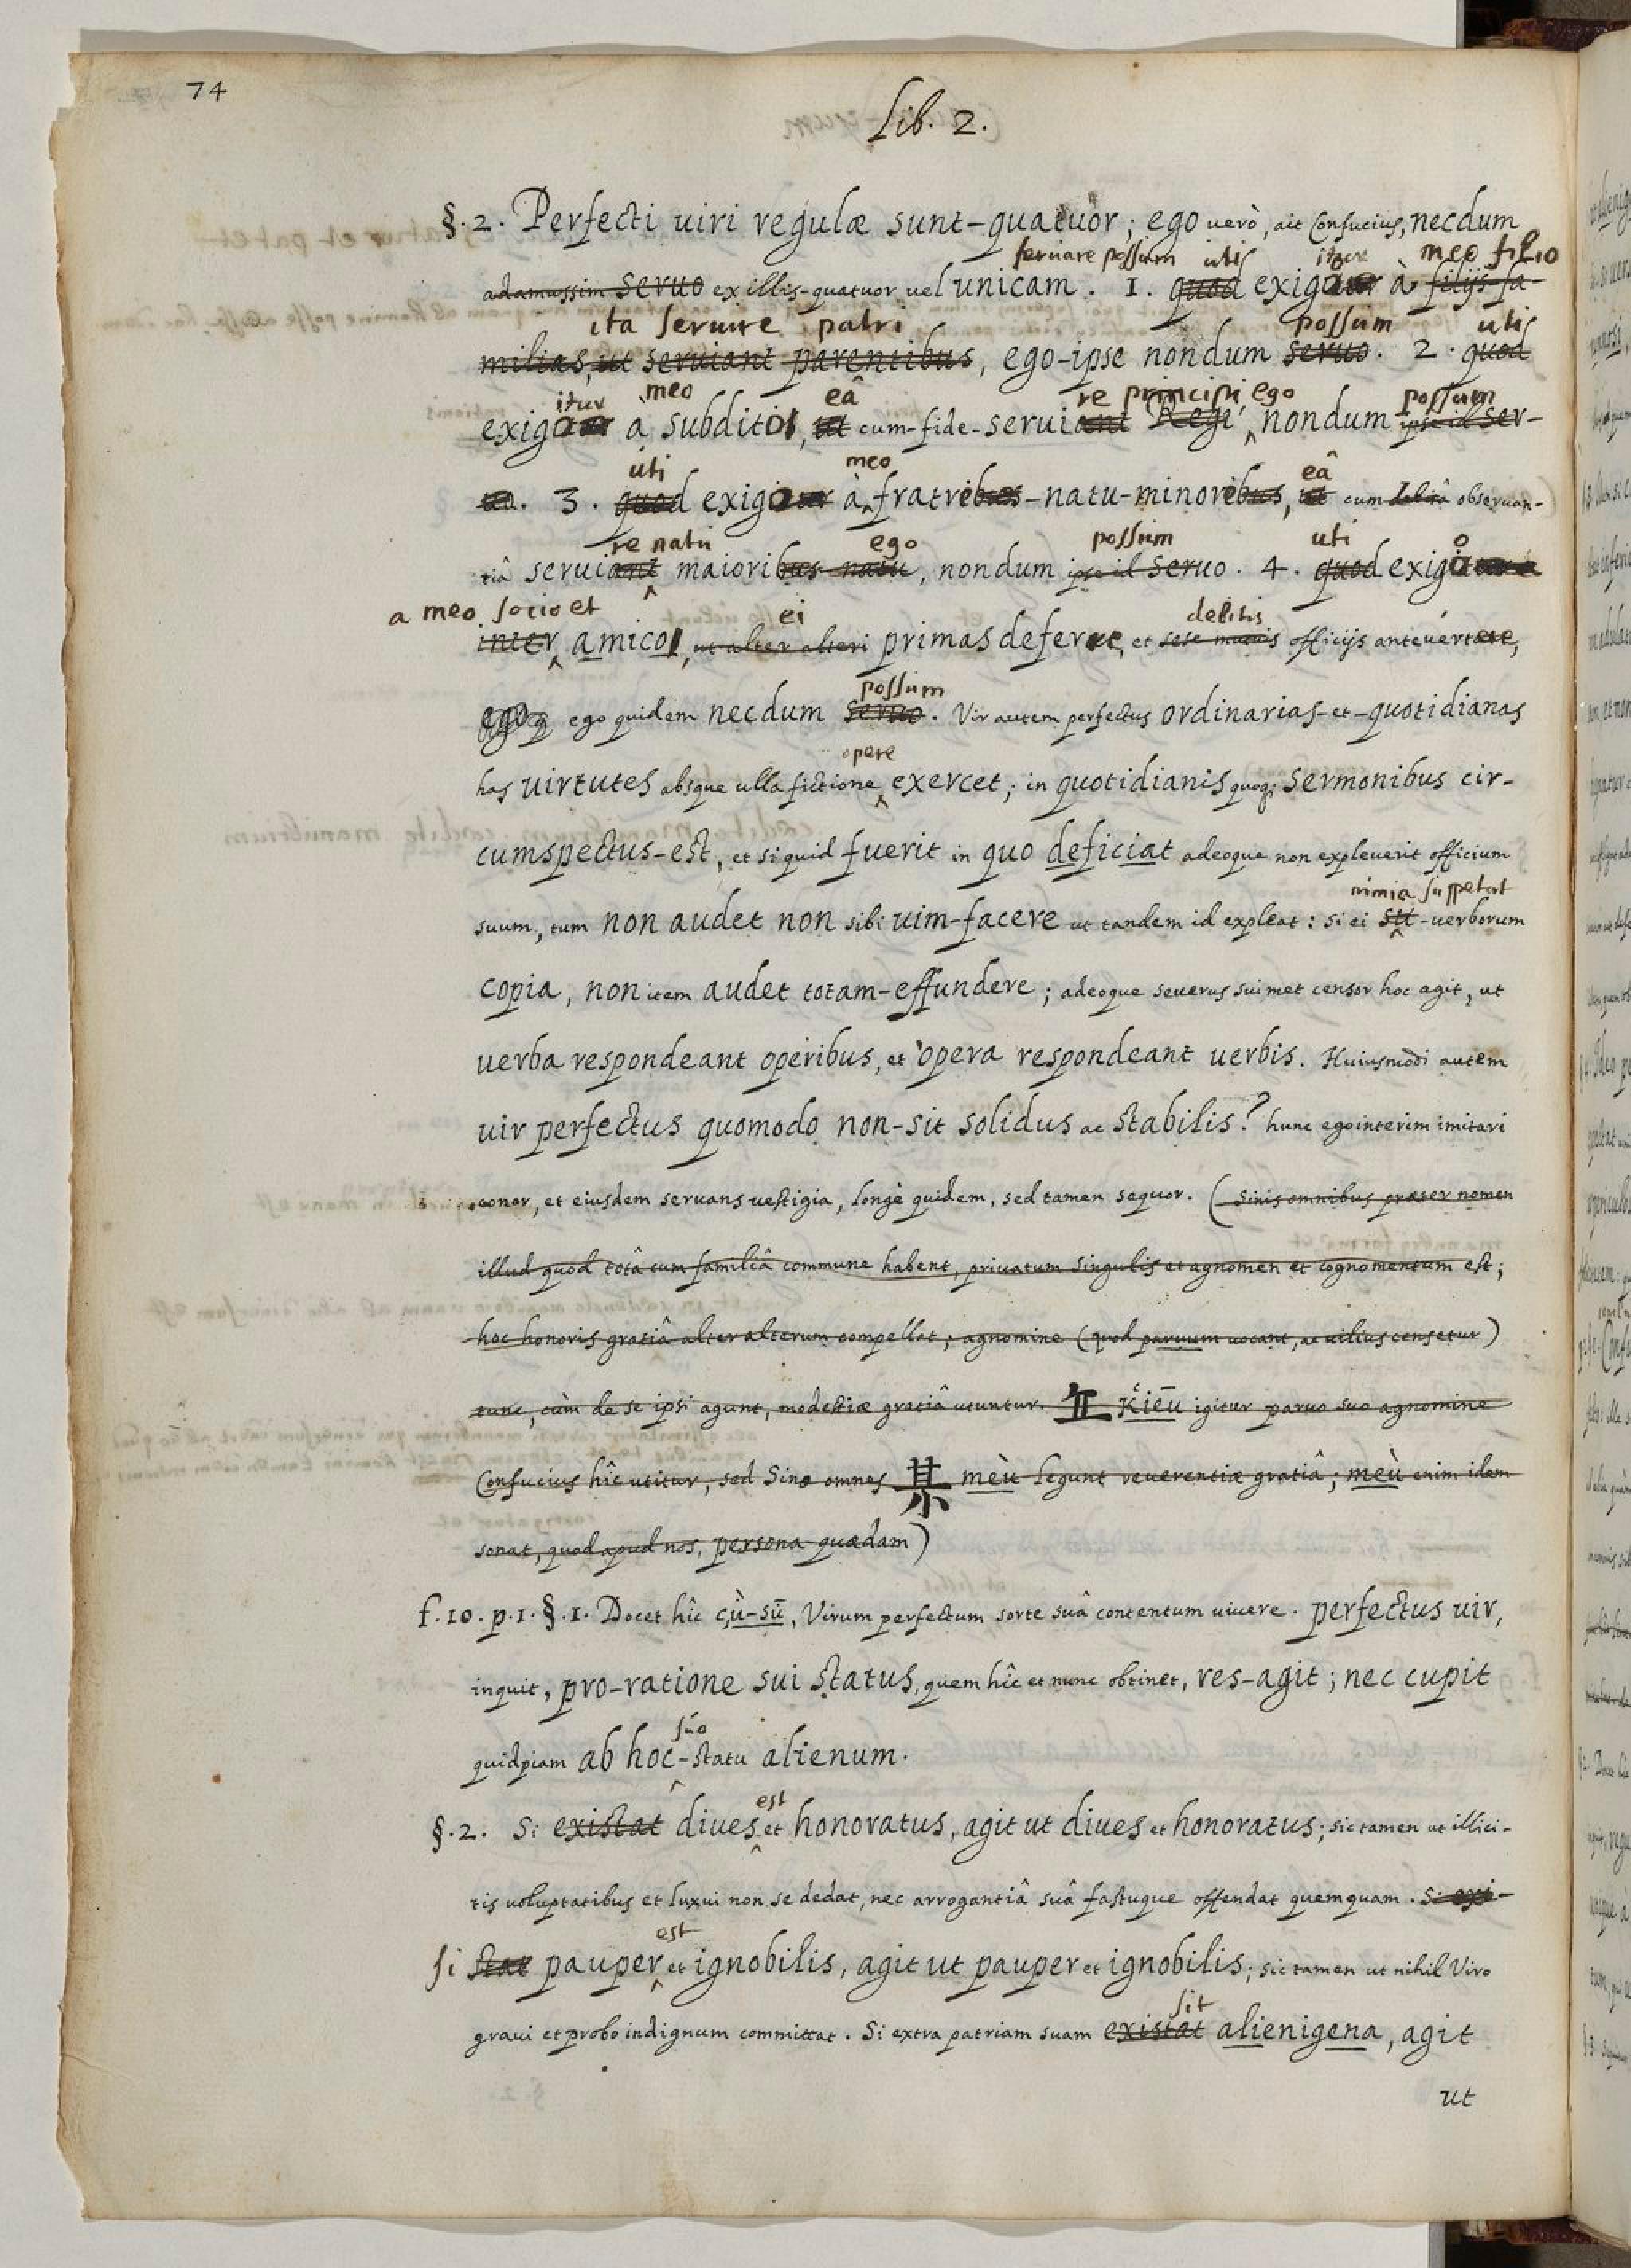 74
Lib. 2.
§. 2. Perfecti uiri regulæ sunt-quatuor; ego uerò, ait Confucius, necdum
seruare possum uti itur meo filio
adamussim seruo ex illis-quatuor uel unicam. 1. quod exigo à filijs-fa-
ita seruire patri possum uti
milias, ut seruiant parentibus, ego-ipse nondum seruo. 2. quod
itur meo eâ re principi ego possum
exigo a subdito, ut cum-fide-seruiant Regi, nondum ipse id ser-
uti meo eâ
uo. 3. quod exigo à fratribus-natu-minoribus, ut cum debitâ obseruan-
re natu ego possum uti o
tiâ seruiant maioribus natu, nondum ipse id seruo. 4. quod exigo
a meo socio et ei debitis
inter amico, ut alter alteri primas deferre, et sese mutuis officijs anteuertere,
possum
ego quidem necdum seruo. Vir autem perfectus ordinarias-et-quotidianas
opere
has uirtutes absque ulla fictione exercet; in quotidianis quoq; sermonibus cir-
cumspectus-est, et si quid fuerit in quo deficiat adeoque non expleuerit officium
nimia suppetat
suum, tum non audet non sibi uim-facere ut tandem id expleat: si ei sit-uerborum
copia, non item audet totam-effundere; adeoque seuerus suimet censor hoc agit, ut
uerba respondeant operibus, et opera respondeant uerbis. Huiusmodi autem
uir perfectus quomodo non-sit solidus ac stabilis? hunc ego interim imitari
conor, et eiusdem seruans uestigia, longè quidem, sed tamen sequor. (Sinis omnibus præter nomen
illud quod totâ cum familiâ commune habent, priuatum singulis et agnomen et cognomentum est;
hoc honoris gratiâ alter alterum compellat; agnomine (quod paruum uocant, ac uilius censetur)
tunc, cùm de se ipsi agunt, modestiæ gratiâ utuntur. 丘 Kʻiēu igitur paruo suo agnomine
Confucius hîc utitur; sed Sinæ omnes 某 mèu legunt reuerentiæ gratiâ; mèu enim idem
sonat, quod apud nos, persona quædam)
f. 10. p. 1. §. 1. Docet hîc çù-sū, Virum perfectum sorte suâ contentum uiuere. perfectus uir,
inquit, pro-ratione sui status, quem hîc et nunc obtinet, res-agit; nec cupit
suo
quidpiam ab hoc-statu alienum.
est
§. 2. Si existat diues et honoratus, agit ut diues et honoratus; sic tamen ut illici-
tis uoluptatibus et luxui non se dedat, nec arrogantiâ suâ fastuque offendat quemquam. Si exi-
est
si stat pauper et ignobilis, agit ut pauper et ignobilis; sic tamen ut nihil Viro
sit
graui et probo indignum committat. Si extra patriam suam existat alienigena, agit
ut